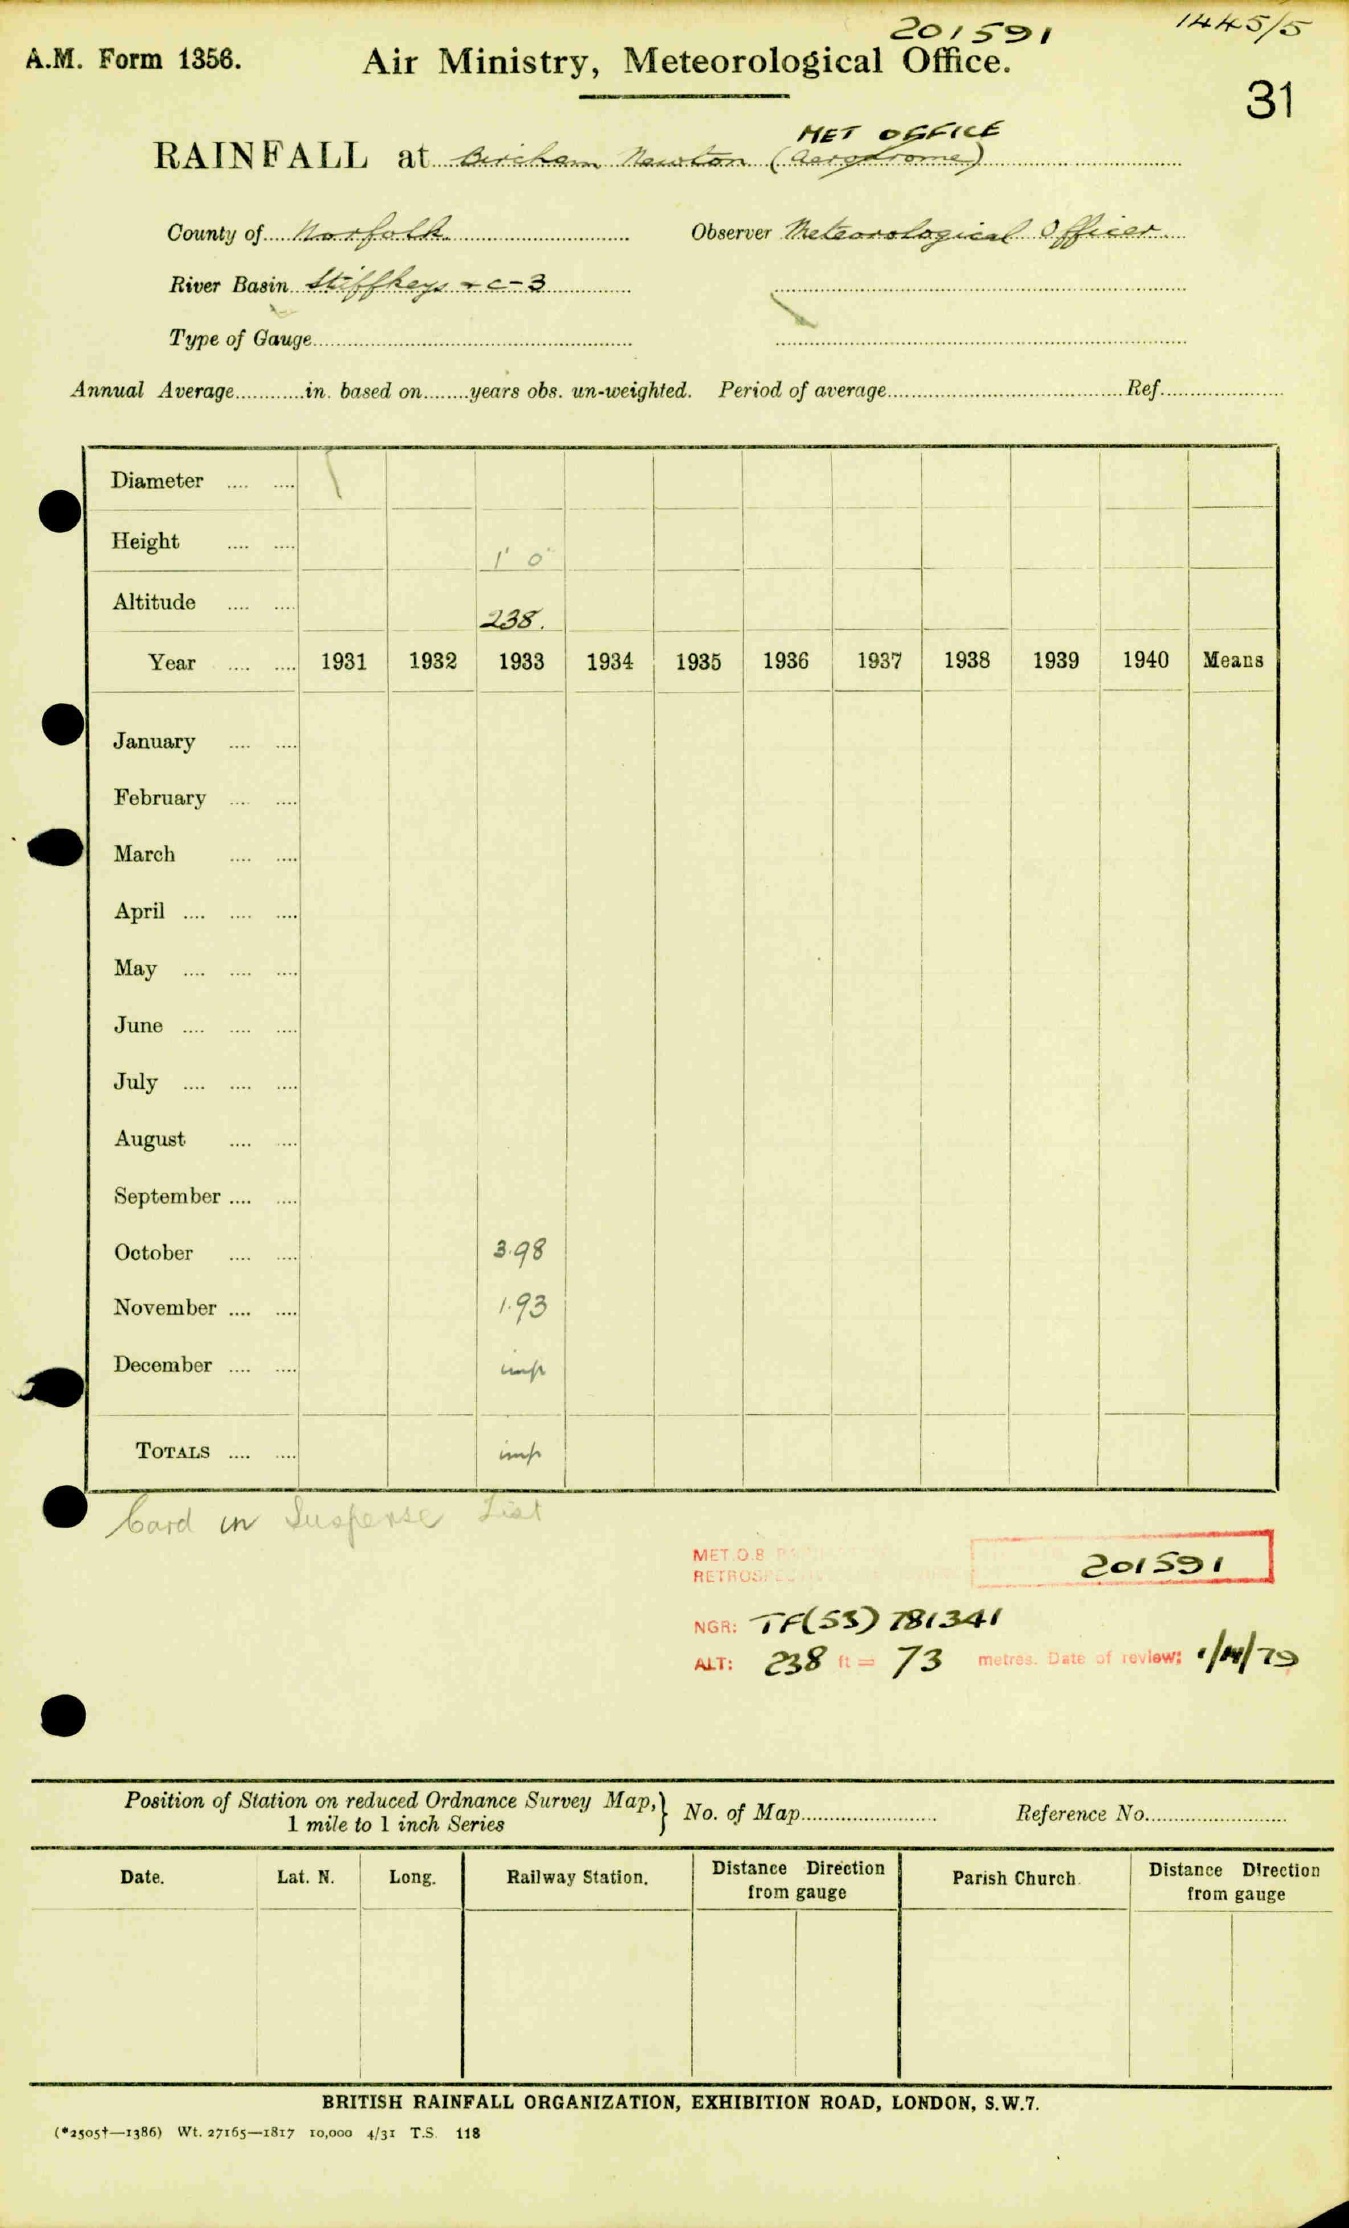 201591 1445/5
A.M. Form 1356. Air Ministry, Meteorological Office.
31
MET OFFICE
RAINFALL at Bircham Newton (Aerodrome)
County of Norfolk. Observer Meteorological Officer
River Basin Stiffkey & c-3
Type of Gauge
Annual Average in. based on years obs. un-weighted. Period of average Ref.
Diameter
Height 1' 0"
Altitude 238.
Year 1931 1932 1933 1934 1935 1936 1937 1938 1939 1940 Means
January
February
March
April
May
June
July
August
September
October 3.98
November 1.93
December imp
TOTALS imp
Card in Suspense List
MET.O.8
201591
NGR: TF(53) 781341
ALT: 238 ft = 73 metres. Date of review:
Position of Station on reduced Ordnance Survey Map, } No. of Map Reference No.
1 mile to 1 inch Series
Date. Lat. N. Long. Railway Station. Distance Direction from gauge Parish Church. Distance Direction from gauge
BRITISH RAINFALL ORGANIZATION, EXHIBITION ROAD, LONDON, S.W.7.
(*2505†—1386) Wt. 27165—1817 10,000 4/31 T.S. 118